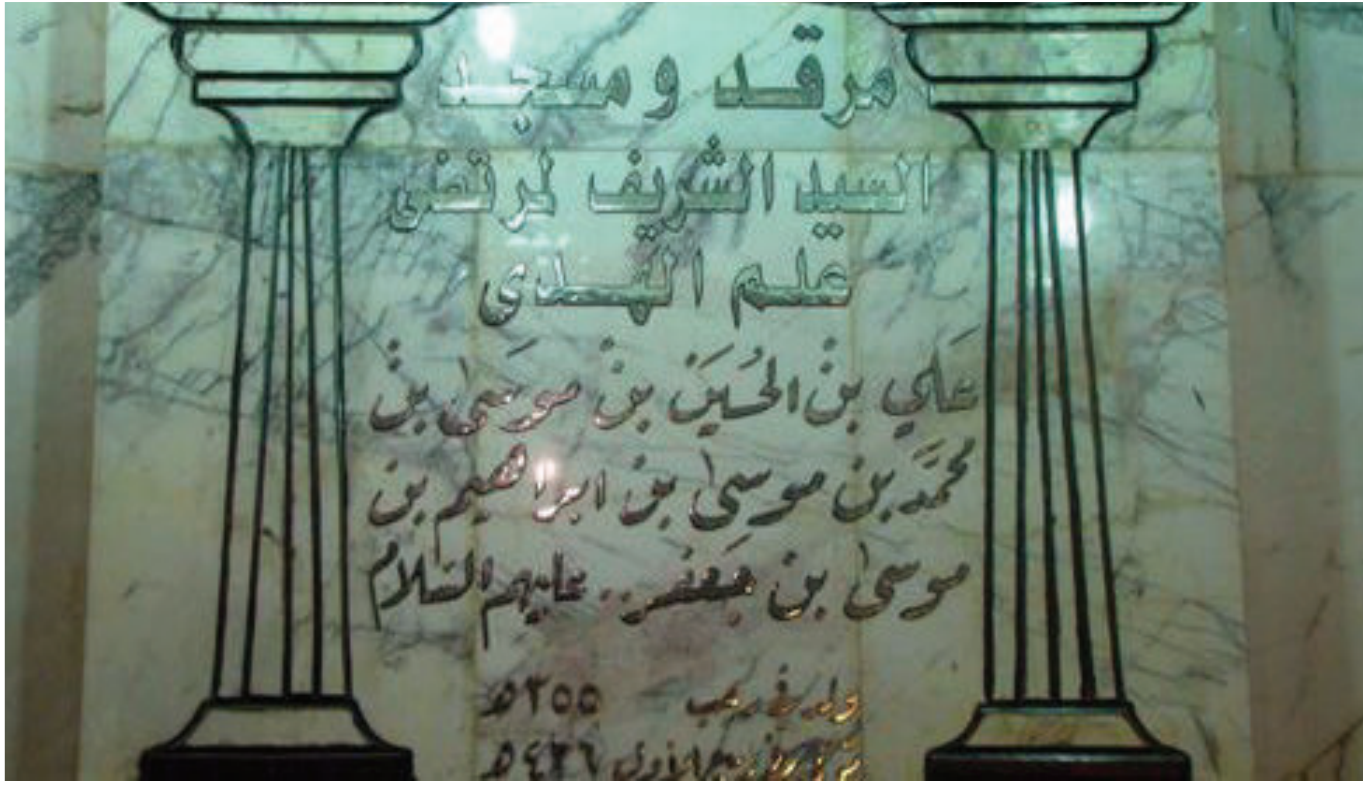 مرقد و مسجد
السيد الشريف لمرتضى
علم الهدي
عَلي بنْ الحُسَين بنْ موسَى بنْ
محمَّد بن موسىٰ بن ابراهيم بن
موسىٰ بن جَعفَر .. عليهم السَّلام
ولد في رجب ٣٥٥ هـ
توفي في ٤٣٦ هـ